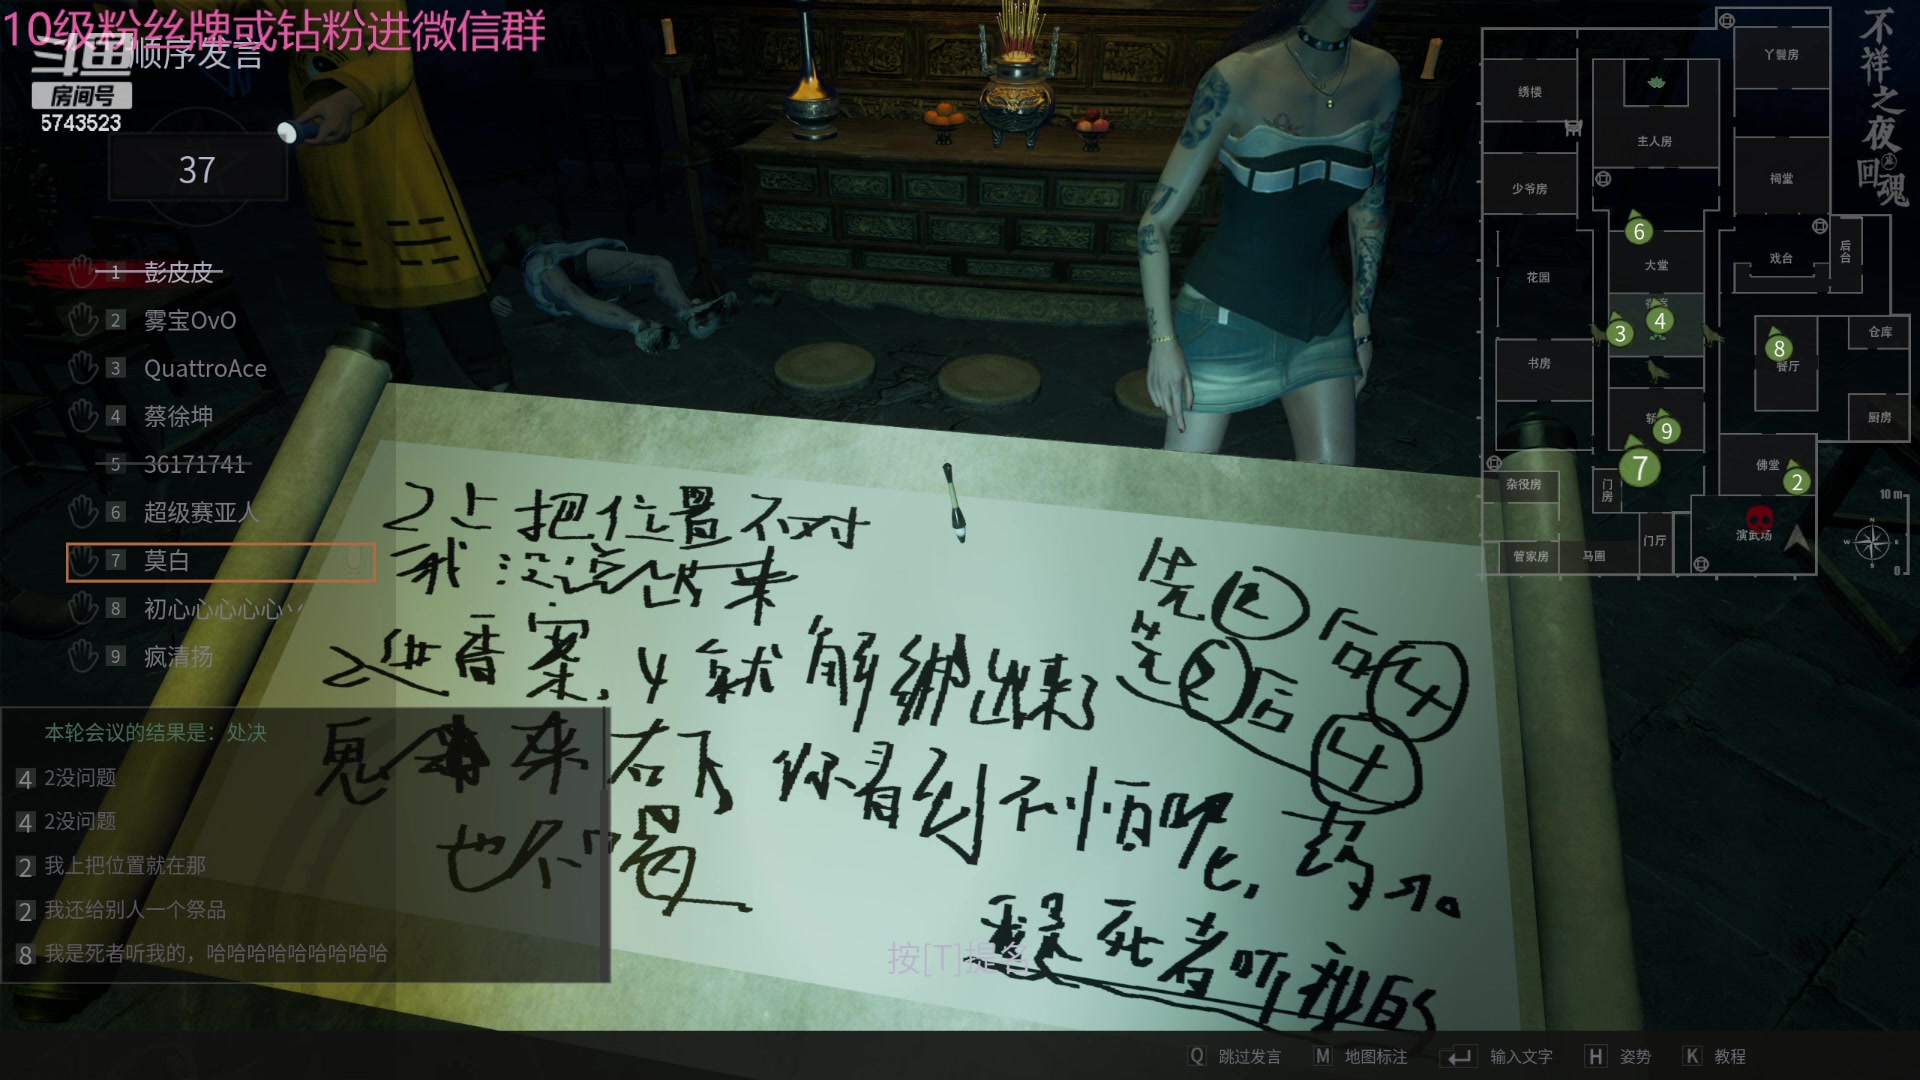 10级粉丝牌或钻粉进微信群
顺序发言
斗鱼
房间号
5743523
37
1 彭皮皮
2 雾宝OvO
3 QuattroAce
4 蔡徐坤
5 36171741
6 超级赛亚人
7 莫白
8 初心心心心心
9 疯清扬
本轮会议的结果是：处决
4 2没问题
4 2没问题
2 我上把位置就在那
2 我还给别人一个祭品
8 我是死者听我的，哈哈哈哈哈哈哈哈哈
2上把位置不对
我没说出来
2进香案，4就解绑出来了
鬼 来右下 你看到不怕呢，药
也不喝
先2后4
先2后4
我是死者听我的
按[T]提名
不祥之夜
回魂
丫鬟房
绣楼
主人房
少爷房
祠堂
6
大堂
戏台
后台
花园
3
4
8
餐厅
仓库
书房
9
厨房
7
佛堂
2
杂役房
门房
演武场
管家房
马圈
门厅
10 m
0
N
W
E
S
Q 跳过发言
M 地图标注
输入文字
H 姿势
K 教程